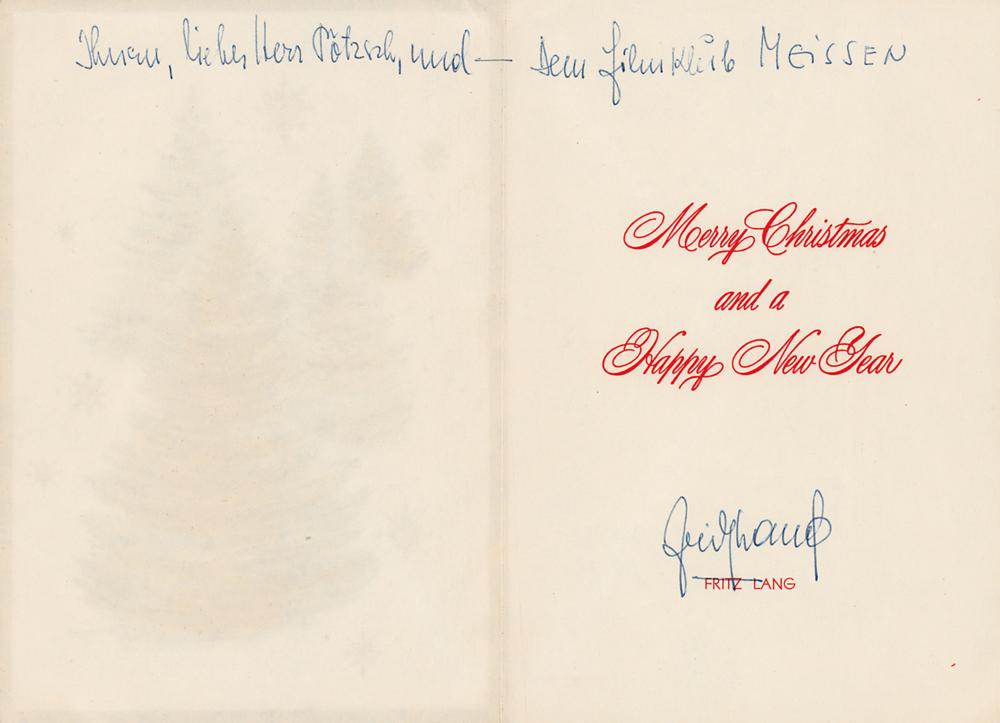 Ihnen, lieber Herr Pötzsch, und — Dem Filmklub MEISSEN
Merry Christmas
and a
Happy New Year
Fritz Lang
FRITZ LANG